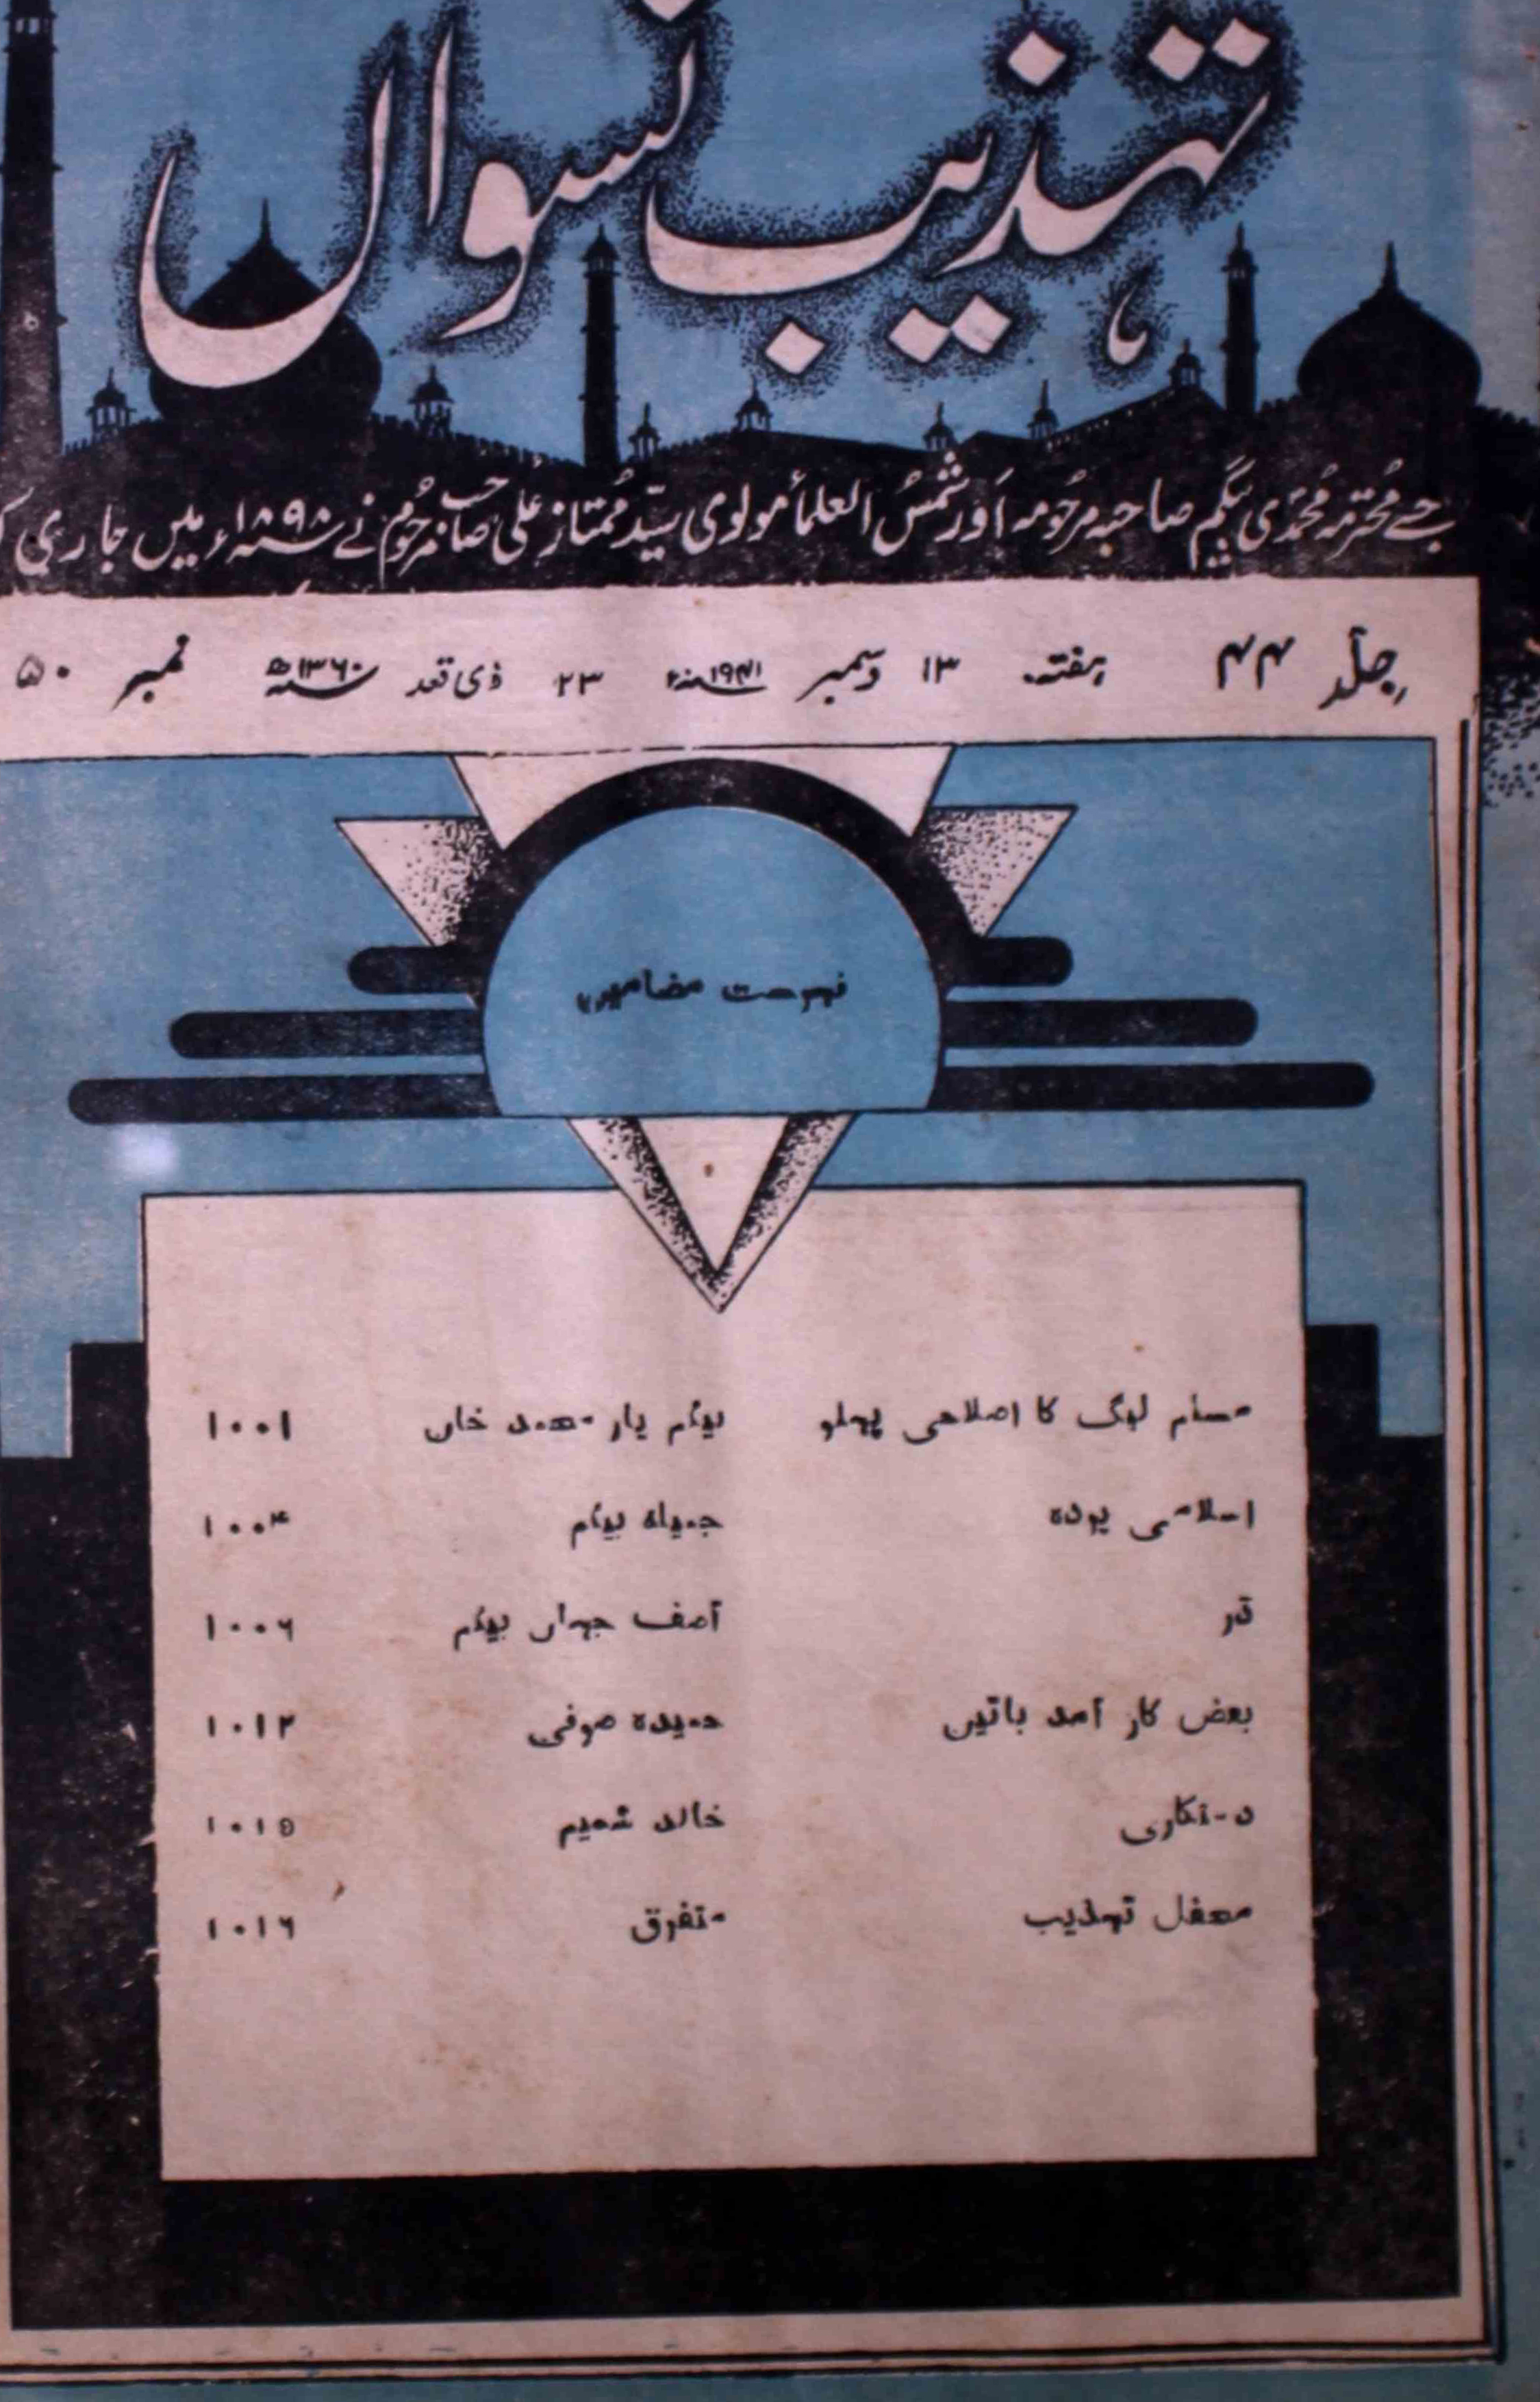 تہذیب نسواں
جسے محترمہ محمدی بیگم صاحبہ مرحومہ اور شمس العلما مولوی سید ممتاز علی صاحب مرحوم نے ۱۸۹۸ء میں جاری
جلد ۴۴ ہفتہ ۱۳ دسمبر سنہ ۱۹۴۱ء ۲۳ ذی قعد سنہ ۱۳۶۰ھ نمبر ۵۰
فہرست مضامین
مسلم لیگ کا اصلاحی پہلو بیگم یار محمد خاں ۱۰۰۱
اسلامی پودہ جمیلہ بیگم ۱۰۰۴
قدر آصف جہاں بیگم ۱۰۰۶
بعض کار آمد باتیں حمیدہ صوفی ۱۰۱۲
دستکاری خالد شمیم ۱۰۱۵
محفل تہذیب متفرق ۱۰۱۶